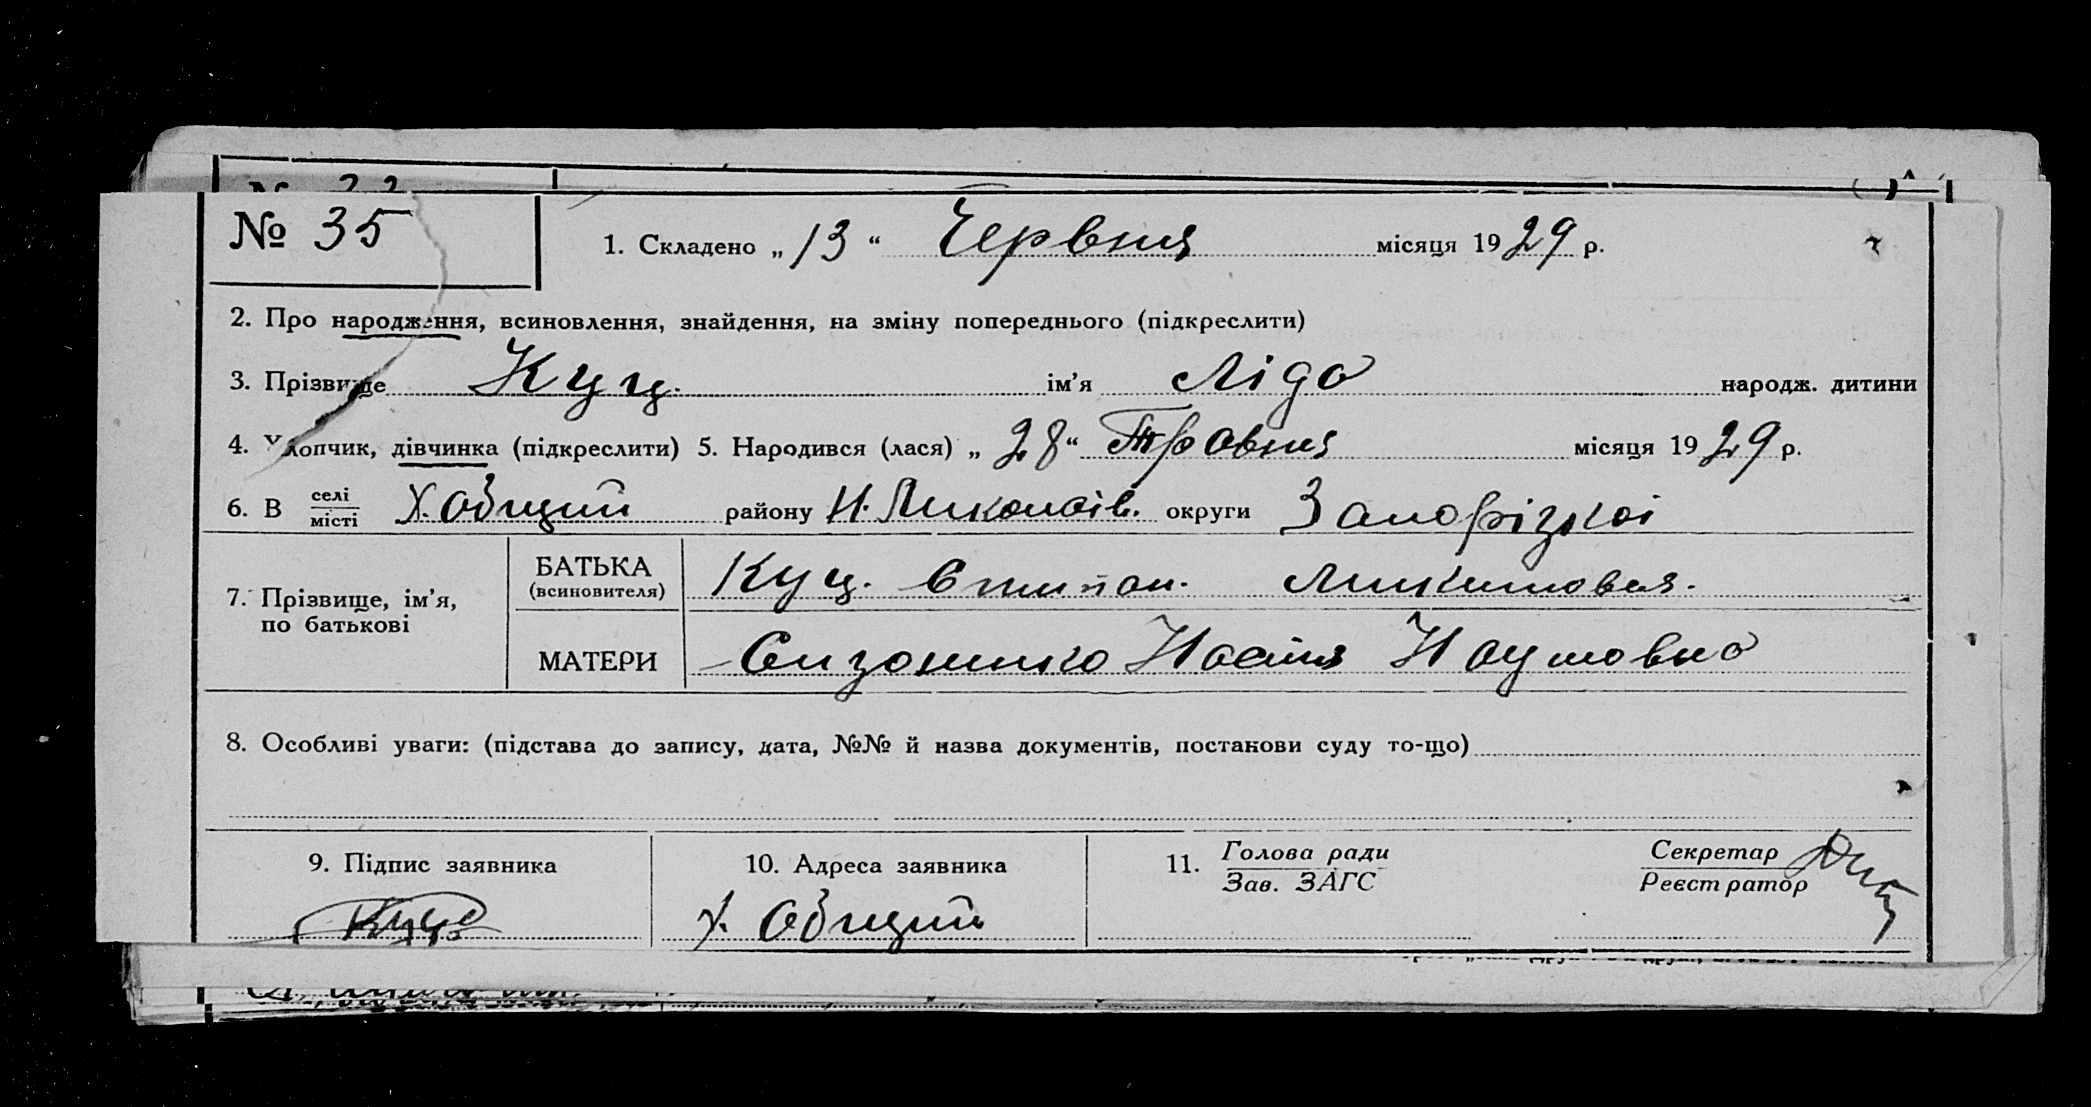 № 35
1. Складено „13“ Червня місяця 1929 р.
2. Про народження, всиновлення, знайдення, на зміну попереднього (підкреслити)
3. Прізвище Куц. ім’я Ліда народж. дитини
4. Хлопчик, дівчинка (підкреслити) 5. Народився (лася) „28“ Травня місяця 1929 р.
6. В селі місті Х. Общий району Н. Миколаїв. округи Запорізкої
7. Прізвище, ім’я, по батькові
БАТЬКА (всиновителя) Куц. Стипан. Микитовея.
МАТЕРИ Сизоненко Настя Наумовна
8. Особливі уваги: (підстава до запису, дата, №№ й назва документів, постанови суду то-що)
9. Підпис заявника
Куц
10. Адреса заявника
Х. Общий
11. Голова ради Зав. ЗАГС
Секретар Реєстратор